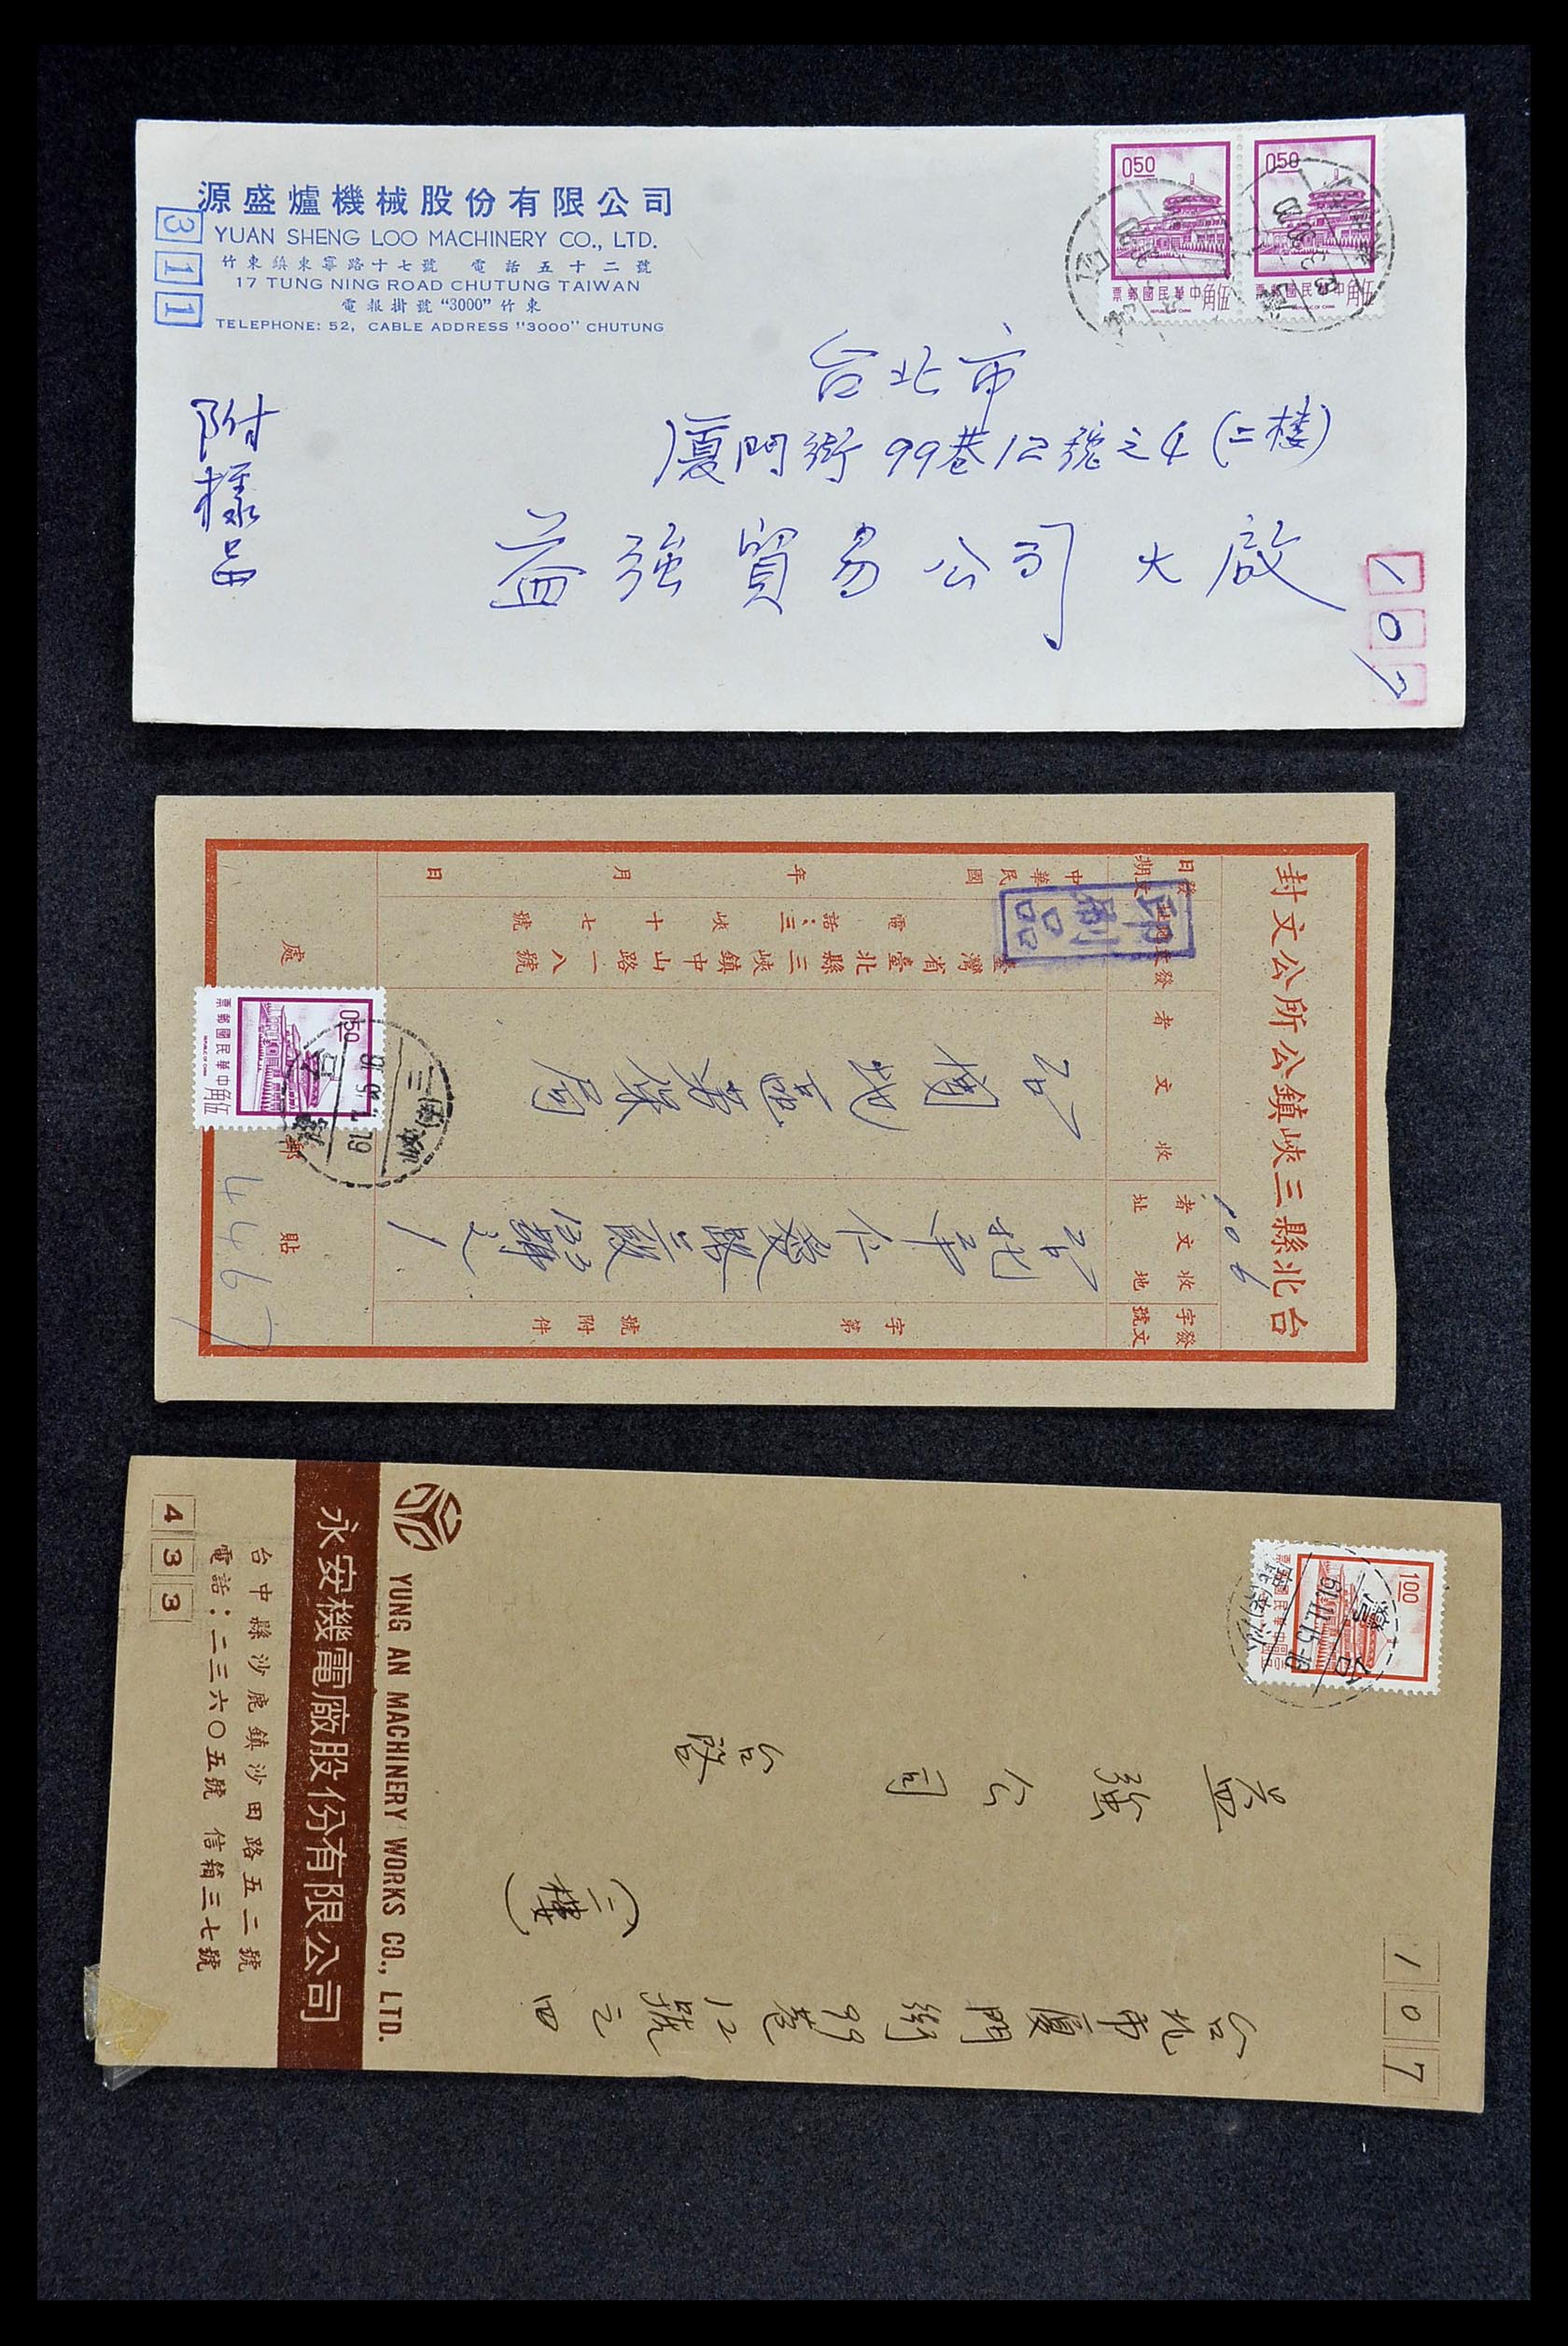 源盛爐機械股份有限公司
YUAN SHENG LOO MACHINERY CO., LTD.
竹東鎮東寧路十七號 電話五十二號
17 TUNG NING ROAD CHUTUNG TAIWAN
電報掛號 "3000" 竹東
TELEPHONE: 52, CABLE ADDRESS "3000" CHUTUNG
311
050
中華民國郵票
伍角
REPUBLIC OF CHINA
050
中華民國郵票
伍角
REPUBLIC OF CHINA
台北市
廈門街99巷12號之4(二樓)
益強貿易公司 大啟
附樣品
107
台北縣三峽鎮公所公文封
106
發文字號
字第 號附件
收文者地址
台北市仁愛路
收文者
地區勞保局
發文者
臺灣省臺北縣三峽鎮中山路一八號
電話：三峽十七號
發文日期
中華民國 年 月 日
印刷品
貼郵 處
050
中華民國郵票
伍角
REPUBLIC OF CHINA
4467
107
台北市廈門街99巷12號之四
(二樓)
益強公司
台啟
1.00
61.11.15
YUNG AN MACHINERY WORKS CO., LTD.
永安機電廠股份有限公司
台中縣沙鹿鎮沙田路五二號
電話：二三六〇五號 信箱三七號
433